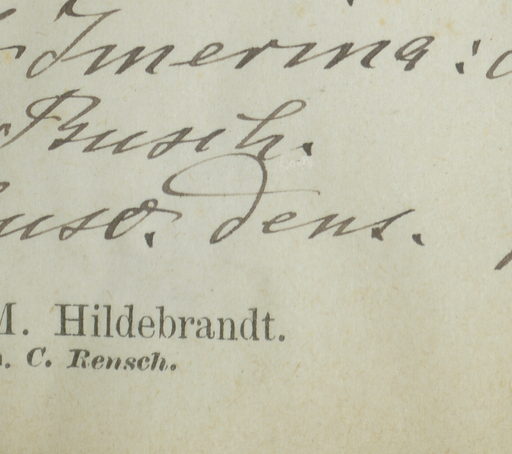 Imerina:
Busch.
dens.
M. Hildebrandt.
C. Rensch.